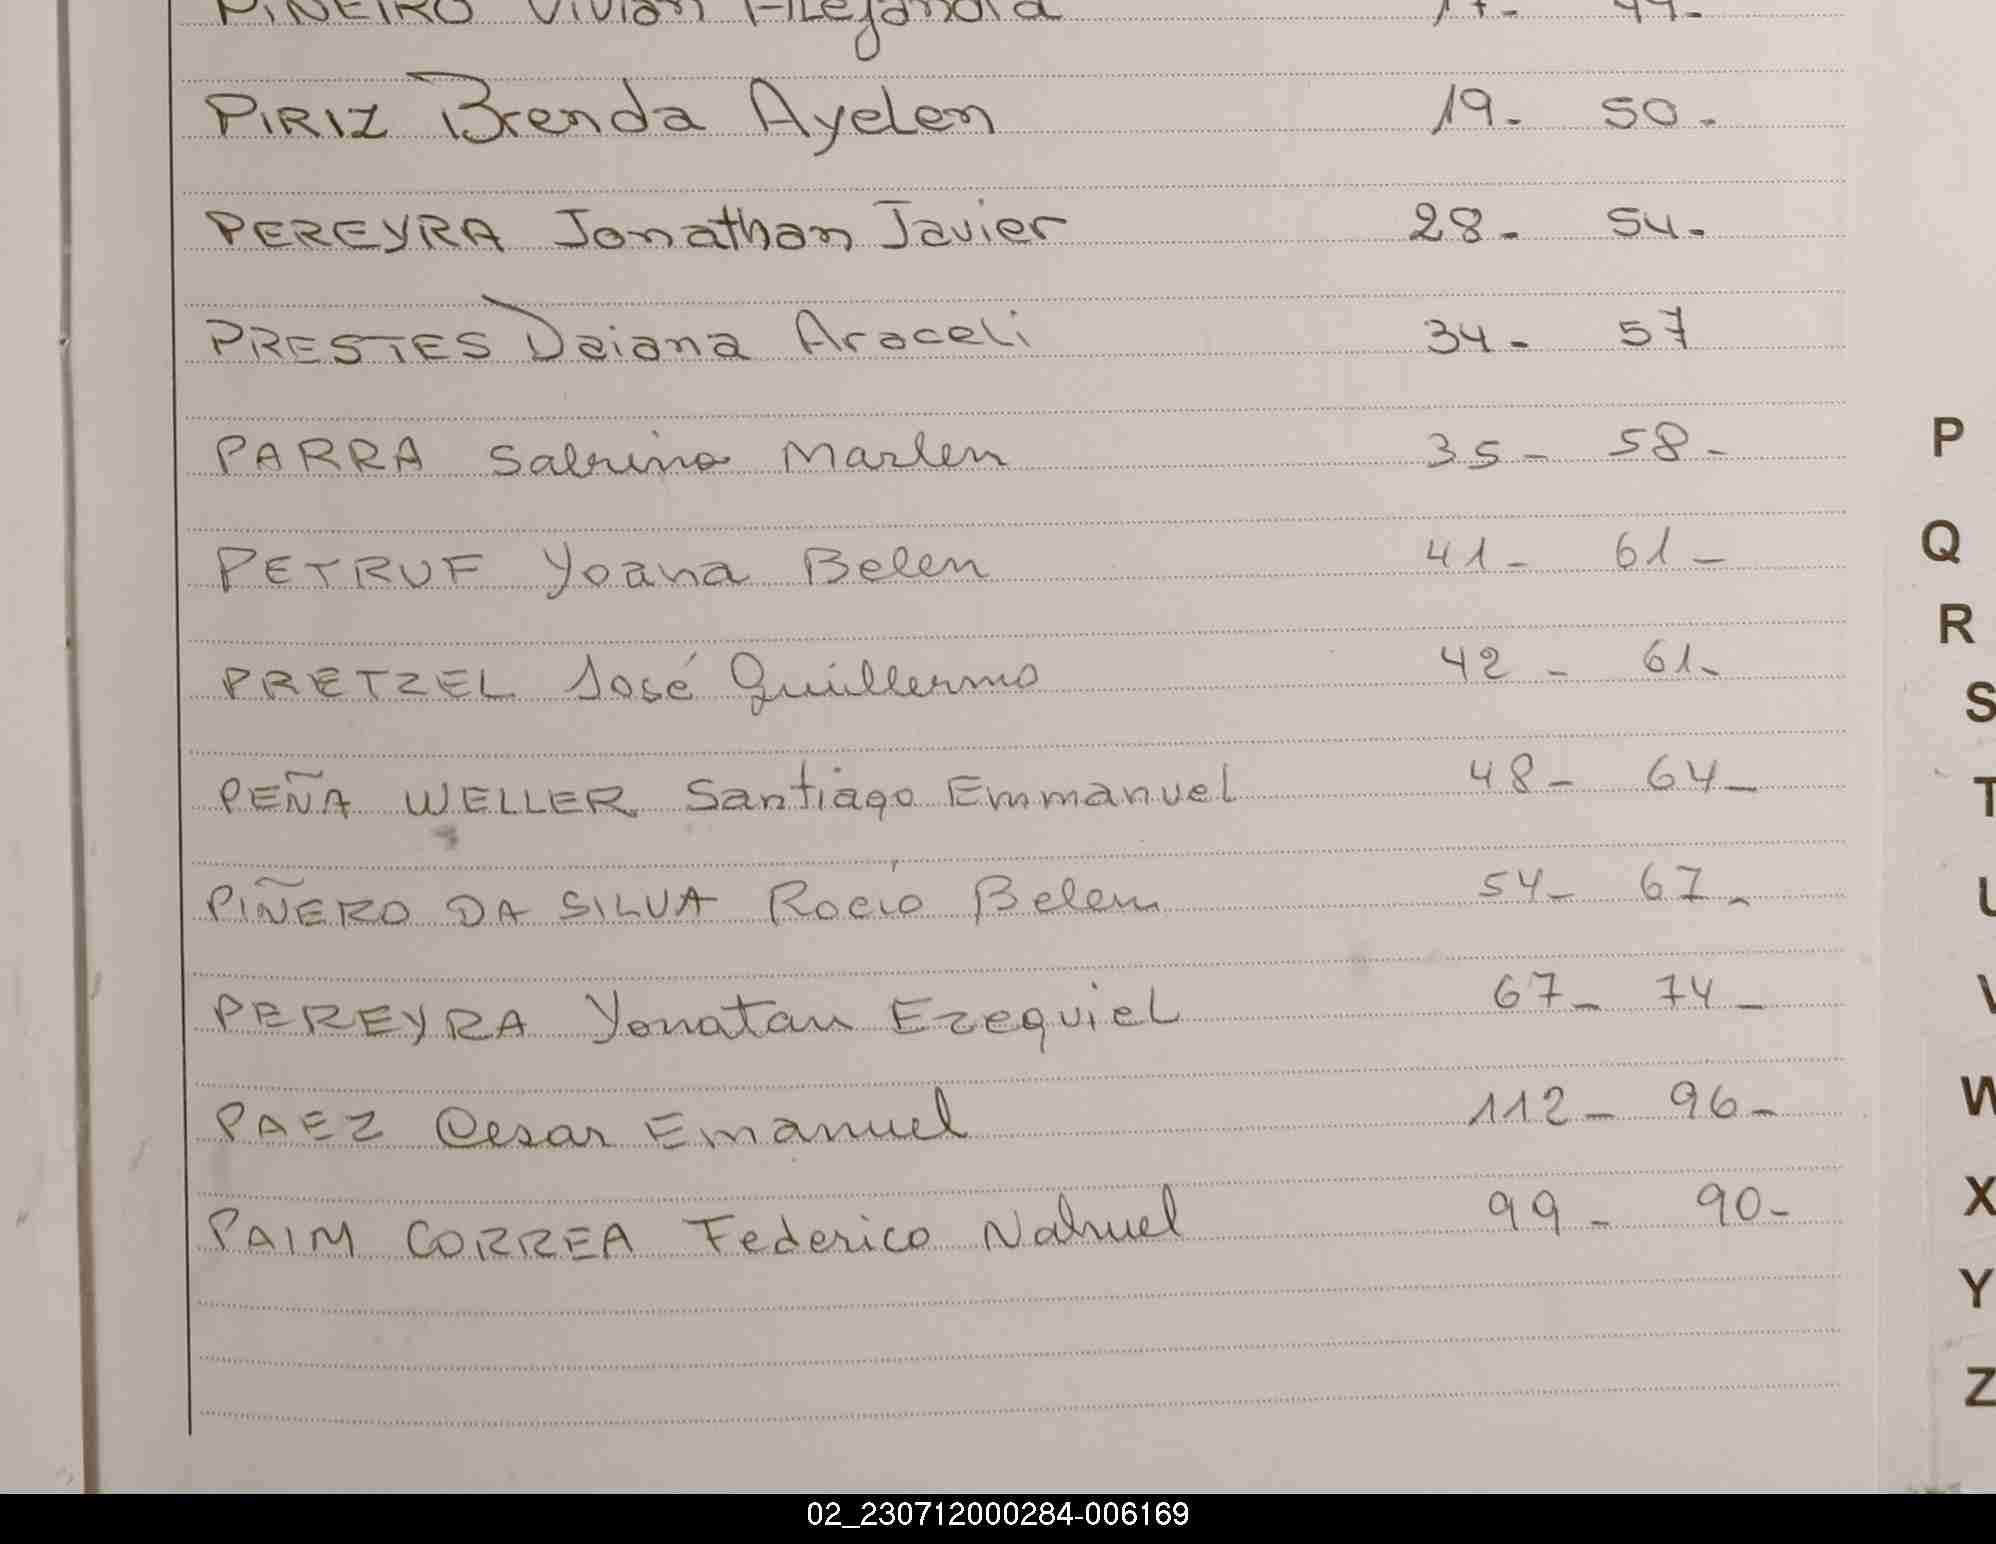 PIÑEIRO Vivian Alejandra 17- 49-
PIRIZ Brenda Ayelen 19- 50-
PEREYRA Jonathan Javier 28- 54-
PRESTES Daiana Araceli 34- 57
PARRA Sabrina Marlen 35- 58-
PETRUF Yoana Belen 41- 61-
PRETZEL José Guillermo 42- 61-
PEÑA WELLER Santiago Emmanuel 48- 64-
PIÑERO DA SILVA Rocío Belen 54- 67-
PEREYRA Yonatan Ezequiel 67- 74-
PAEZ Cesar Emanuel 112- 96-
PAIM CORREA Federico Nahuel 99- 90-
P
Q
R
S
T
U
V
W
X
Y
Z
02_230712000284-006169